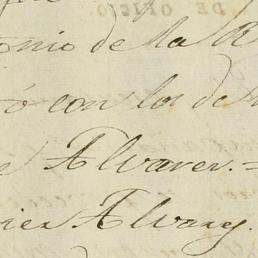 DE OFICIO.
onio de la R
ó con los de
e Alvarez.=
ier Alvarez.